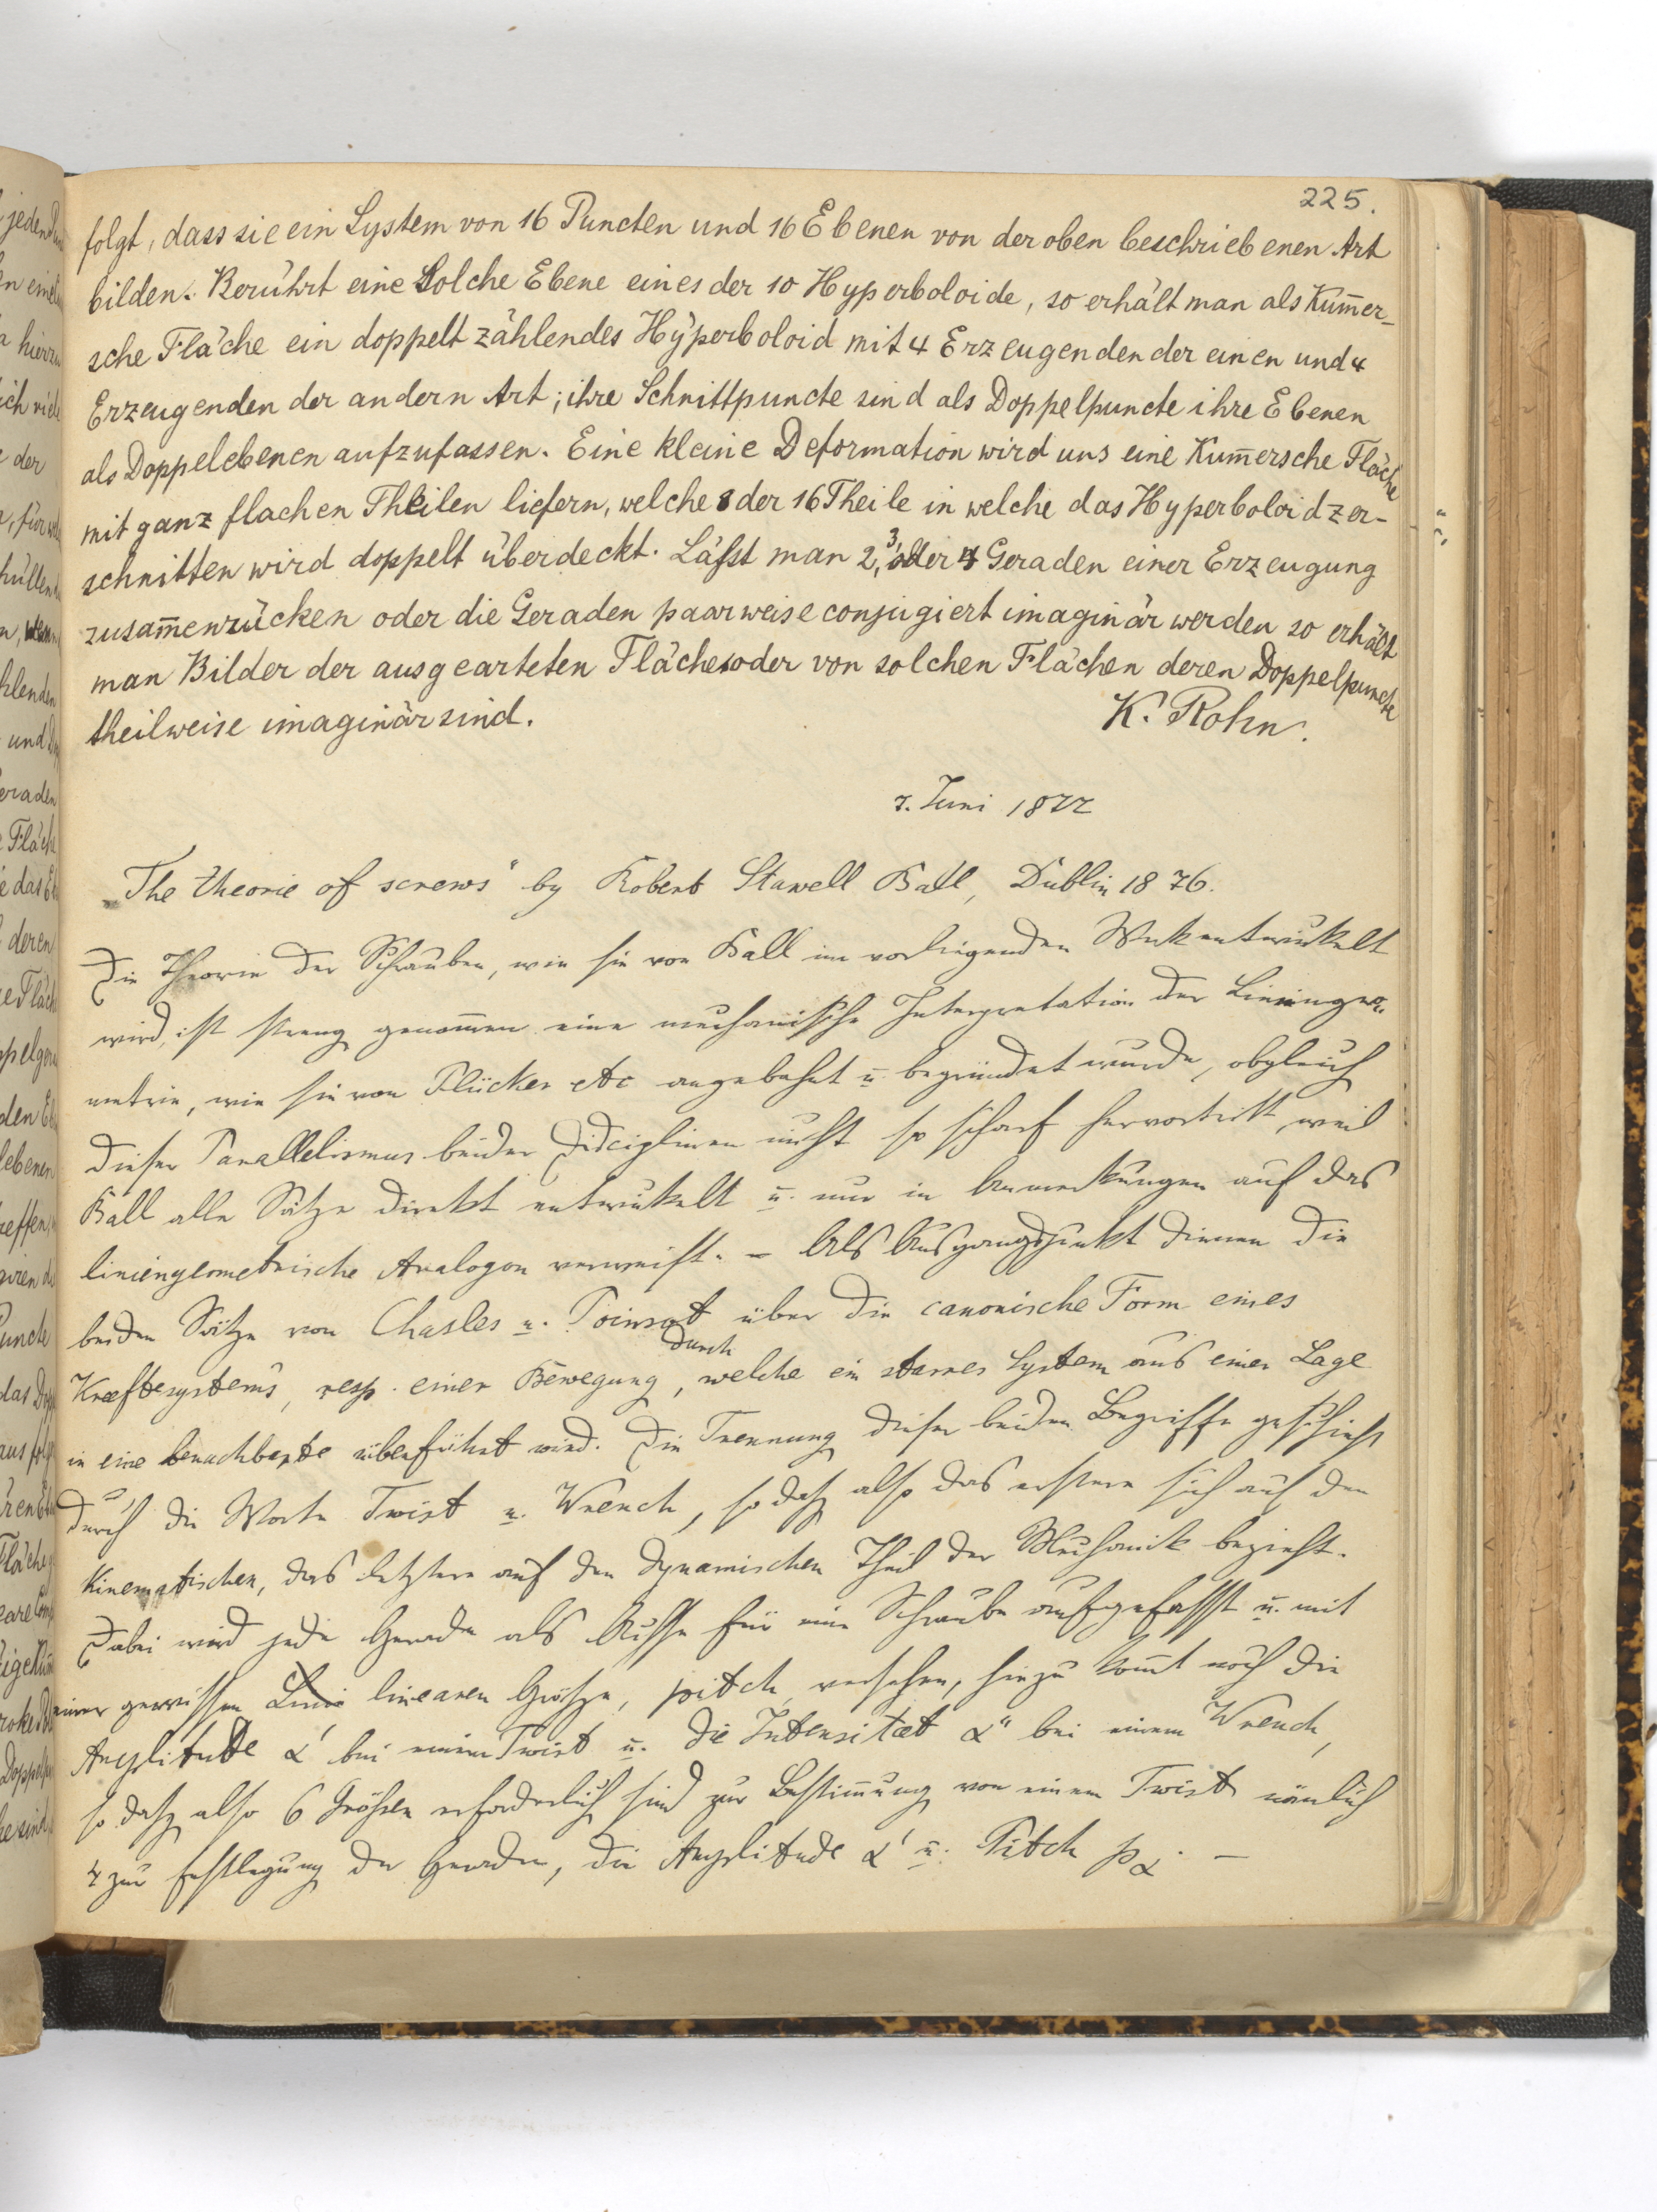 225.
folgt, dass sie ein System von 16 Puncten und 16 Ebenen von der oben beschriebenen Art
bilden. Berührt eine solche Ebene eines der 10 Hyperboloide, so erhält man als Kum̄er-
sche Fläche ein doppelt zählendes Hyperboloid mit 4 Erzeugenden der einen und 4
Erzeugenden der andern Art; ihre Schnittpuncte sind als Doppelpuncte ihre Ebenen
als Doppelebenen aufzufassen. Eine kleine Deformation wird uns eine Kum̄ersche Fläche
mit ganz flachen Theilen liefern, welche 8 der 16 Theile in welche das Hyperboloid zer-
schnitten wird doppelt überdeckt. Läſst man 2, 3, oder 4 Geraden einer Erzeugung
zusam̄enrücken oder die Geraden paarweise conjugiert imaginär werden so erhält
man Bilder der ausgearteten Fläche oder von solchen Flächen deren Doppelpuncte
theilweise imaginär sind.
K. Rohn.
7. Juni 1877
„The theorie of screws" by Robert Stawell Ball, Dublin 1876.
Die Theorie der Schrauben, wie sie von Ball im vorliegenden Werk entwickelt
wird, ist streng genom̄en eine mechanische Interpretation der Liniengeo-
metrie, wie sie von Plücker etc angebahnt u. begründet wurde, obgleich
dieser Parallelismus beider Disciplinen nicht so scharf hervortritt, weil
Ball alle Sätze direkt entwickelt u. nur in Anmerkungen auf das
liniengeometrische Analogon verweist. – Als Ausgangspunkt dienen die
beiden Sätze von Chasles u. Poinsot über die canonische Form eines
Kraeftesystems, resp. einer Bewegung, durch welche ein starres System aus einer Lage
in eine benachbarte überführt wird. Die Trennung dieser beiden Begriffe geschieht
durch die Worte Twist u. Wrench, so daß also das erstere sich auf den
kinematischen, das letztere auf den dynamischen Theil der Mechanik bezieht.
Dabei wird jede Gerade als Achse für eine Schraube aufgefasst u. mit
einer gewissen linearen Größe, pitch, versehen, hiezu kom̄t noch die
Amplitude α' bei einem Twist u. die Intensitaet α" bei einem Wrench,
so daß also 6 Größen erforderlich sind zur Bestim̄ung von einem Twist nämlich
4 zur Festlegung der Geraden, die Amplitude α' u. Pitch p_α. –